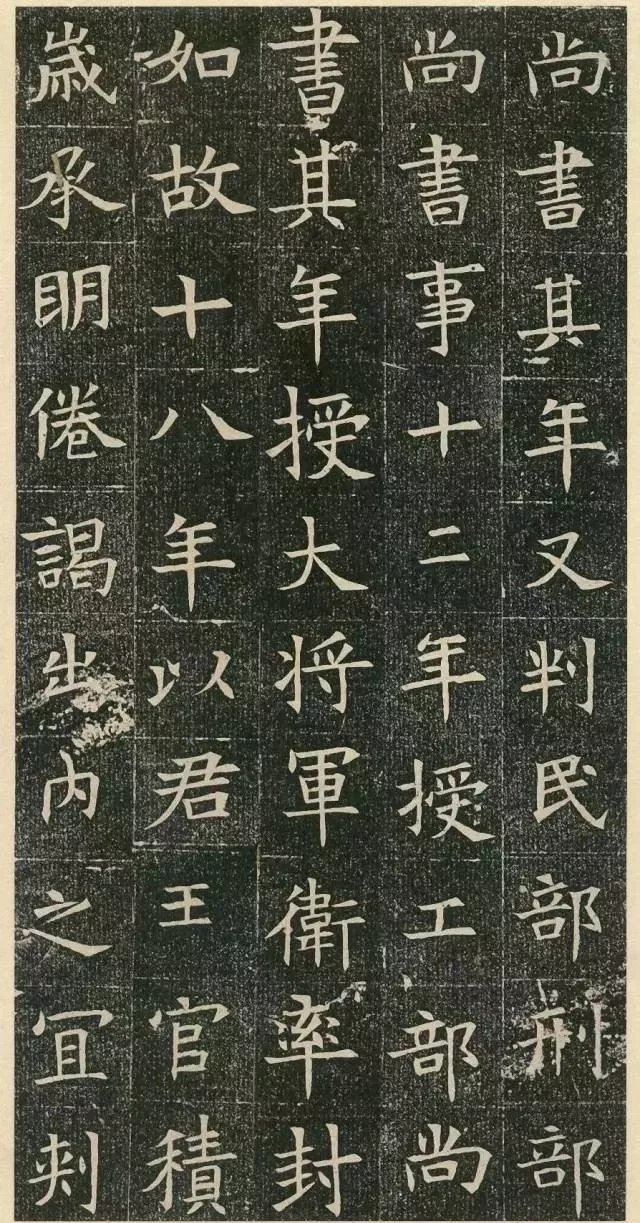 尚書其年又判民部刑部
尚書事十二年授工部尚
書其年授大将軍衛率封
如故十八年以君王官積
歲承眀倦謁出內之冝刾